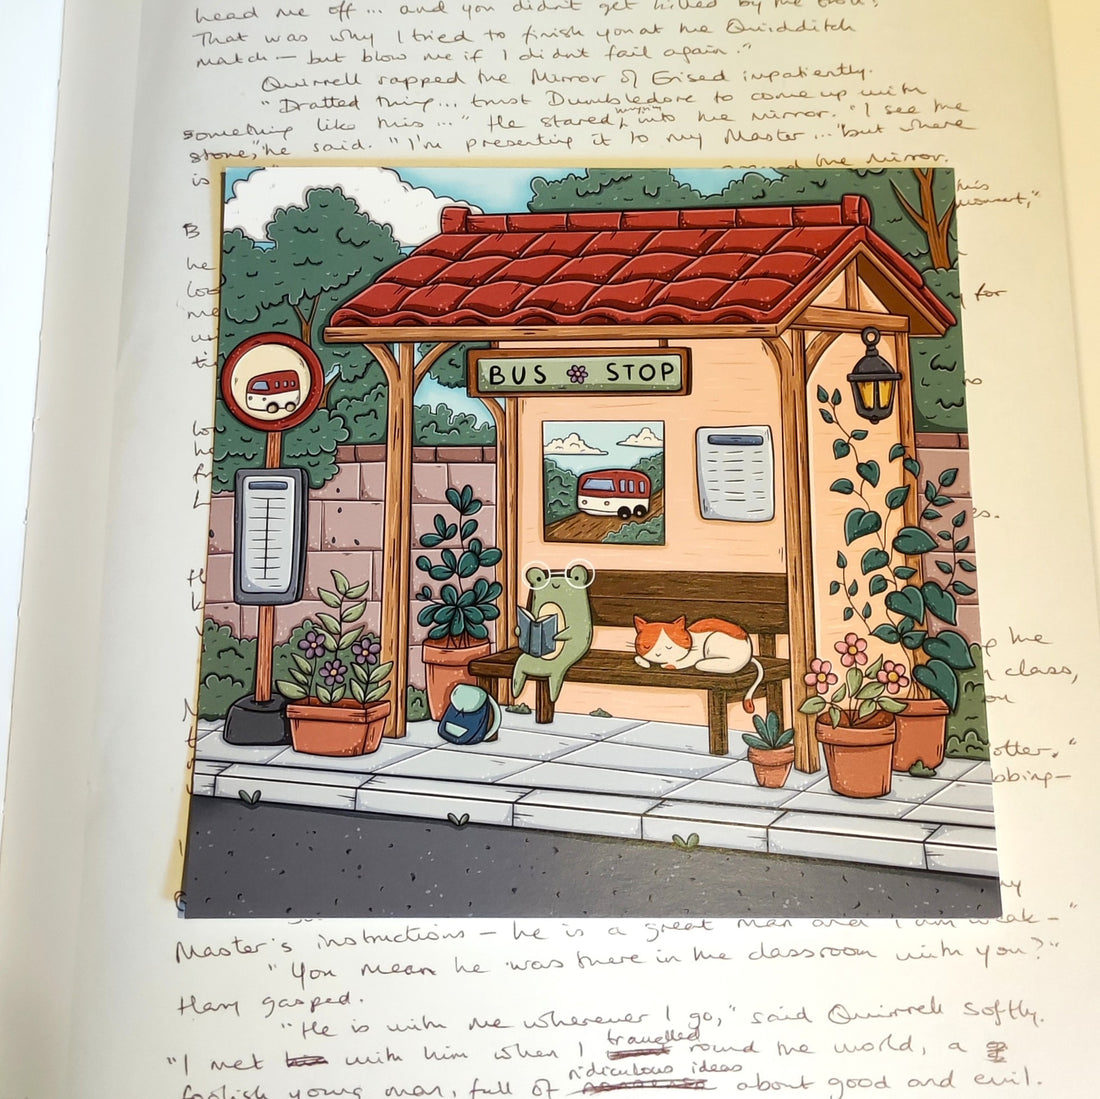 head me off... and you didn't get killed by the troll,
That was why I tried to finish you at the Quidditch
match — but blow me if I didn't fail again."
Quirrell rapped the Mirror of Erised impatiently.
"Dratted thing... trust Dumbledore to come up with
something like this..." He stared into the mirror. "I see the
stone," he said. "I'm presenting it to my Master... but where
is the mirror.
his
B moment,"
he
for
me
BUS STOP
the
class,
otter."
bbing—
Master's instructions — he is a great man and I am weak —"
"You mean he was there in the classroom with you?"
Harry gasped.
"He is with me wherever I go," said Quirrell softly.
"I met with him when I travelled round the world, a
foolish young man, full of ridiculous ideas about good and evil.